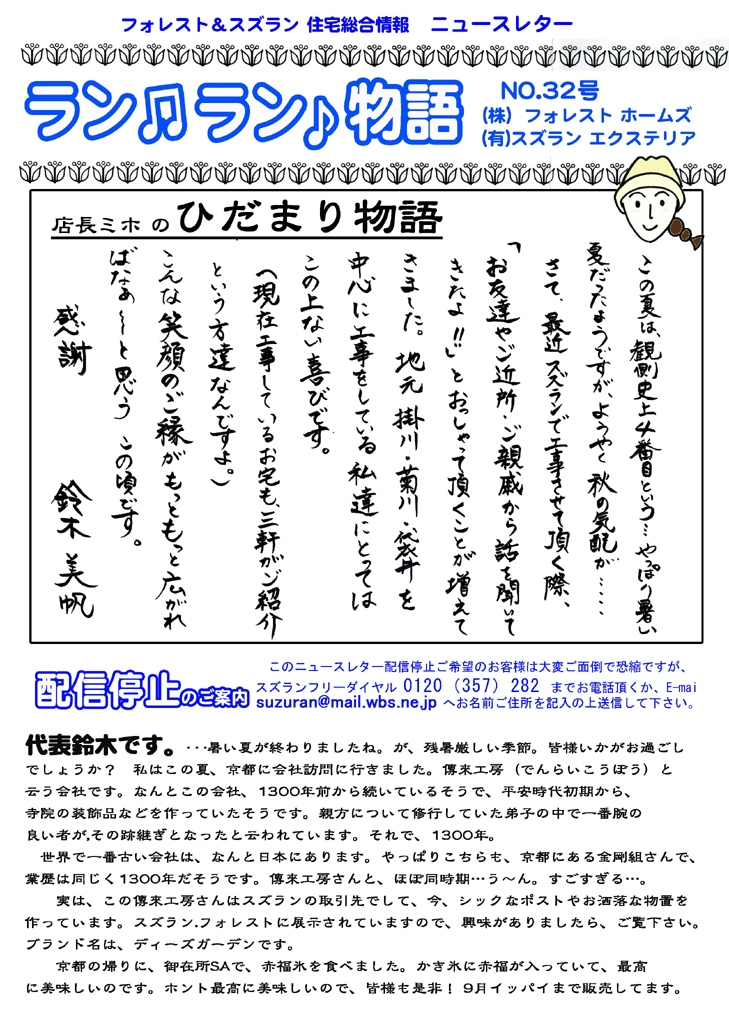 フォレスト＆スズラン 住宅総合情報　ニュースレター
ラン♫ラン♪物語
NO.32号
(株) フォレスト ホームズ
(有)スズラン エクステリア
店長ミホ の ひだまり物語
この夏は、観側史上4番目という…やっぱり暑い
夏だったようですが、ようやく秋の気配が……
さて、最近スズランで工事させて頂く際、
「お友達やご近所・ご親戚から話を聞いて
きたよ!!」とおっしゃって頂くことが増えて
きました。地元 掛川・菊川・袋井を
中心に工事をしている私達にとっては
この上ない喜びです。
（現在工事しているお宅も、三軒がご紹介
という方達なんですよ。）
こんな笑顔のご縁がもっともっと広がれ
ばなぁ～と思う この頃です。
感謝　　鈴木 美帆
配信停止のご案内
このニュースレター配信停止ご希望のお客様は大変ご面倒で恐縮ですが、
スズランフリーダイヤル 0120（357）282 までお電話頂くか、E-mai
suzuran@mail.wbs.ne.jp へお名前ご住所を記入の上送信して下さい。
代表鈴木です。･･･暑い夏が終わりましたね。が、残暑厳しい季節。皆様いかがお過ごし
でしょうか？　私はこの夏、京都に会社訪問に行きました。傳来工房（でんらいこうぼう）と
云う会社です。なんとこの会社、1300年前から続いているそうで、平安時代初期から、
寺院の装飾品などを作っていたそうです。親方について修行していた弟子の中で一番腕の
良い者が,その跡継ぎとなったと云われています。それで、1300年。
　世界で一番古い会社は、なんと日本にあります。やっぱりこちらも、京都にある金剛組さんで、
業歴は同じく1300年だそうです。傳来工房さんと、ほぼ同時期…う～ん。すごすぎる…。
　　実は、この傳来工房さんはスズランの取引先でして、今、シックなポストやお洒落な物置を
作っています。スズラン.フォレストに展示されていますので、興味がありましたら、ご覧下さい。
ブランド名は、ディーズガーデンです。
　　京都の帰りに、御在所SAで、赤福氷を食べました。かき氷に赤福が入っていて、最高
に美味しいのです。ホント最高に美味しいので、皆様も是非！ 9月イッパイまで販売してます。